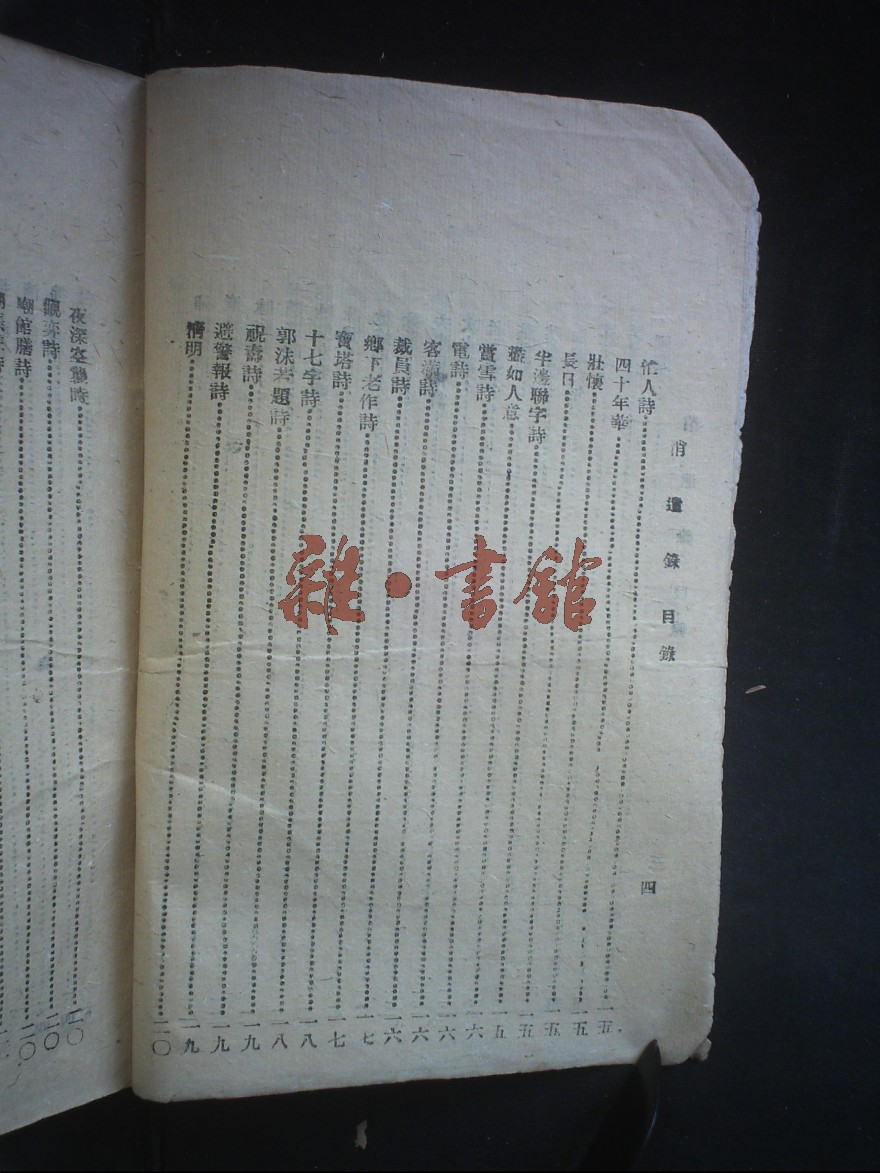 消遣錄目錄 四
忙人詩 一五
四十年華 一五
壯懷 一五
長日 一五
半邊聯字詩 一五
盡如人意 一六
賞雪詩 一六
電詩 一六
客滿詩 一六
裁員詩 一七
鄉下老作詩 一七
寶塔詩 一八
十七字詩 一八
郭沫若題詩 一九
祝壽詩 一九
避警報詩 一九
清明 二〇
夜深客襲詩 二〇
觀弈詩 二〇
嘲館膳詩 二〇
雜·書館